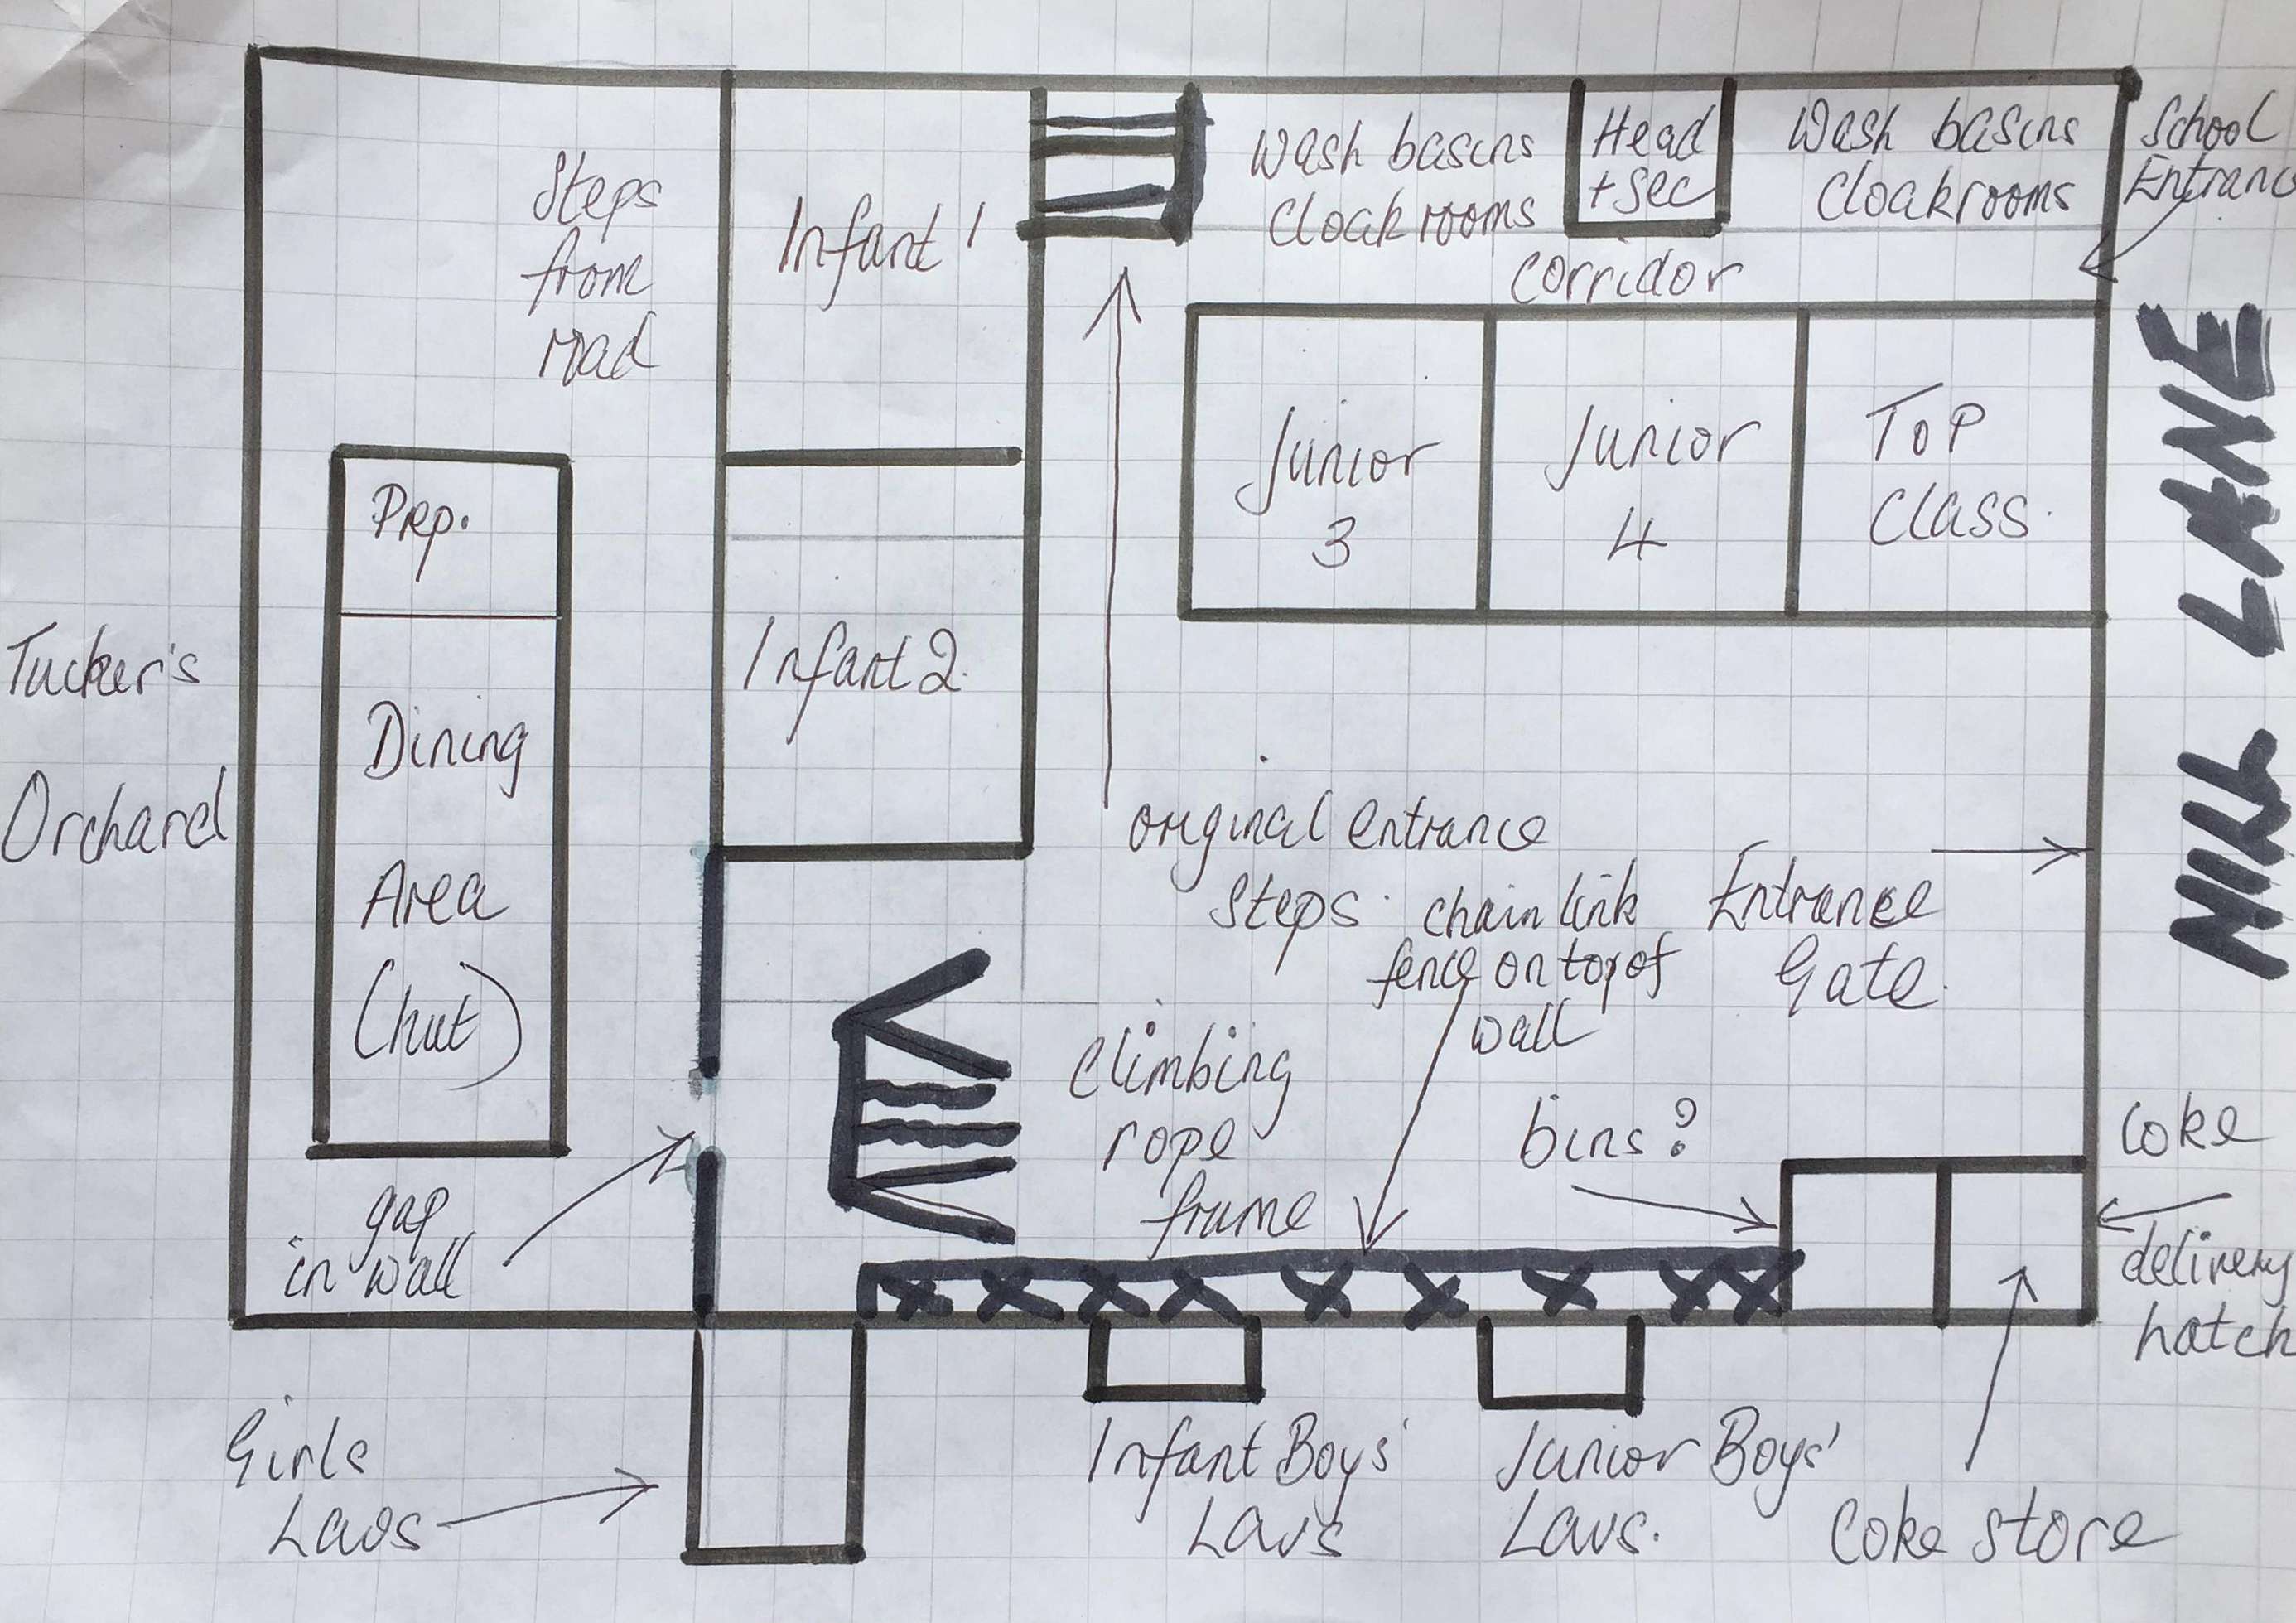 Steps
from
road
Infant 1
Wash basins
Cloakrooms
Head
+ Sec
Wash basins
Cloakrooms
School
Entranc
Corridor
Prep.
Junior
3
Junior
4
Top
Class.
MILL LANE
Tucker's
Orchard
Infant 2.
Dining
Area
(hut)
original entrance
Steps.
chain link
fence on top of
wall
Entrance
Gate.
Climbing
rope
frame
bins?
Coke
delivery
hatch
gap
in wall
Girls
Lavs
Infant Boys'
Lavs
Junior Boys'
Lavs.
Coke store